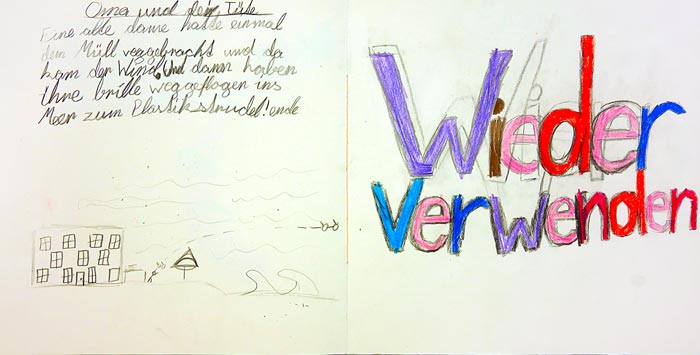 Oma und dein Tüte
Eine alte dame hatte einmal
dem Müll weggebracht und da
kam der Wind. Und dann haben
ihre brille weggeflogen ins
Meer zum Plastikstrudel! ende
Wieder
verwenden